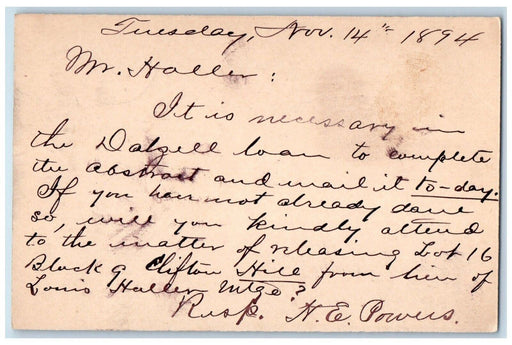 Tuesday, Nov. 14th 1894
Mr. Haller:
It is necessary in
the Dalzell loan to complete
the abstract and mail it to-day.
If you have not already done
so, will you kindly attend
to the matter of releasing Lot 16
Block 9 Clifton Hill from lien of
Louis Haller mtge?
Resp. N. E. Powers.